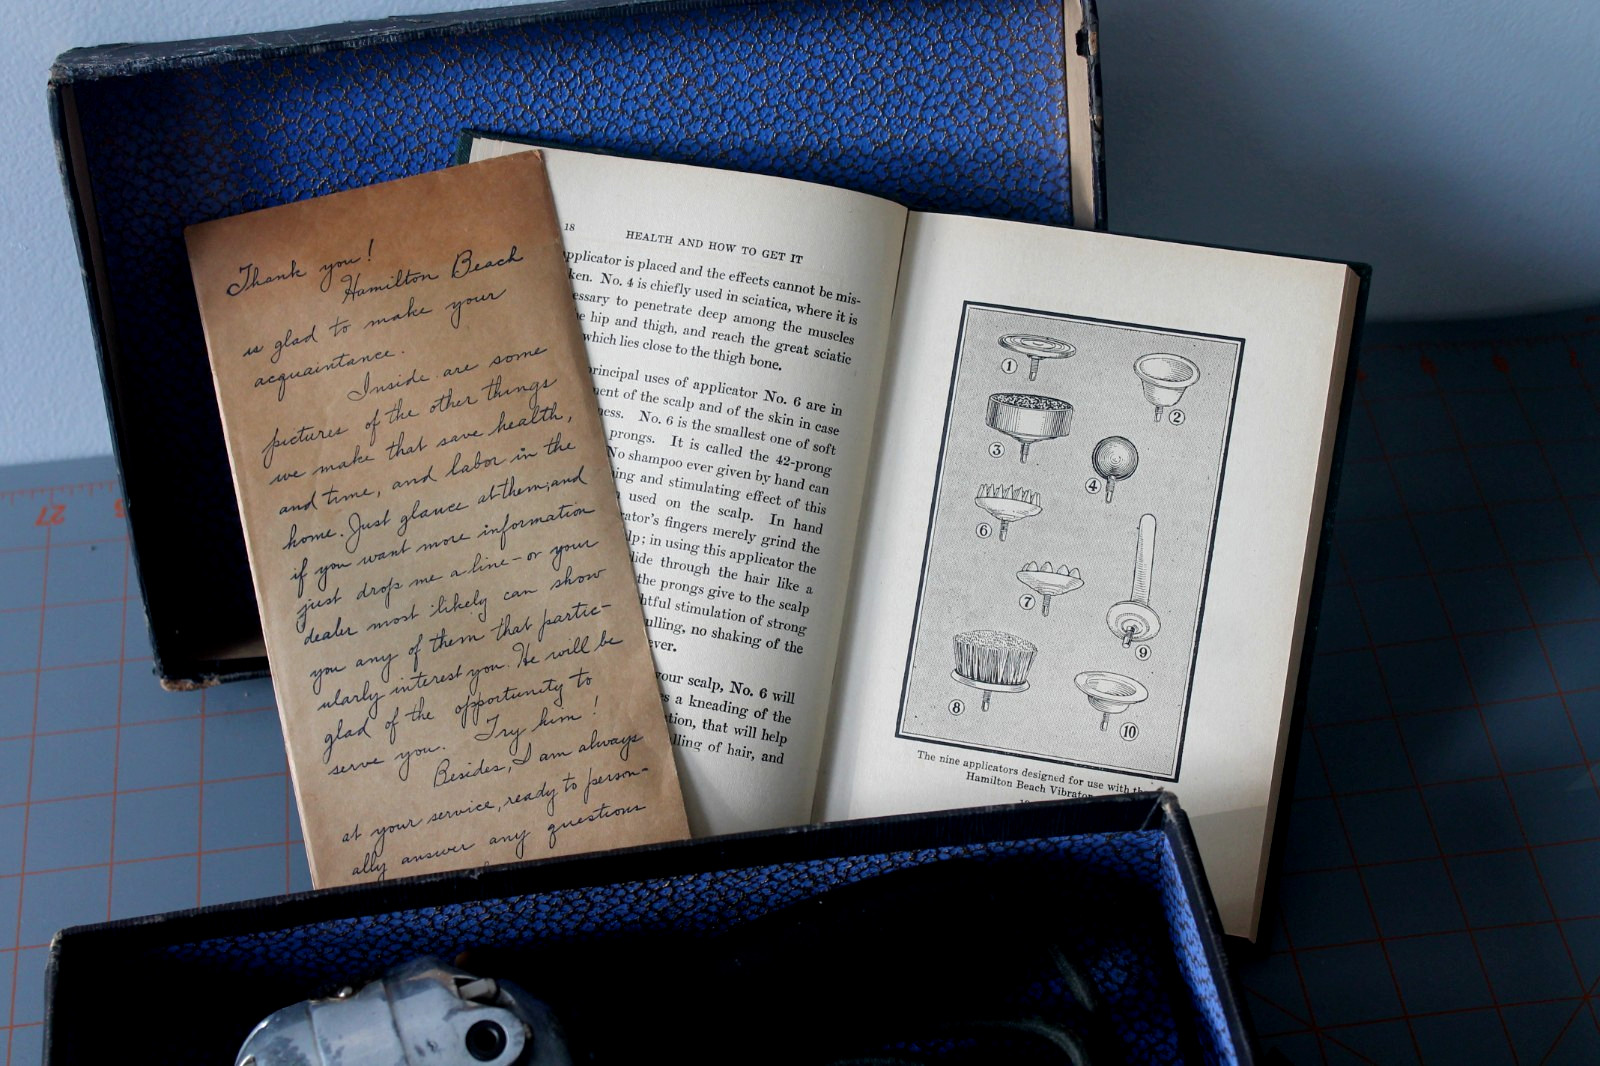 Thank you!
Hamilton Beach
is glad to make your
acquaintance.
Inside are some
pictures of the other things
we make that save health,
and time, and labor in the
home. Just glance at them; and
if you want more information
just drop me a line - or your
dealer most likely can show
you any of them that partic-
ularly interest you. He will be
glad of the opportunity to
serve you. Try him!
Besides, I am always
at your service, ready to person-
ally answer any questions
18 HEALTH AND HOW TO GET IT
applicator is placed and the effects cannot be mis-
ken. No. 4 is chiefly used in sciatica, where it is
essary to penetrate deep among the muscles
e hip and thigh, and reach the great sciatic
which lies close to the thigh bone.
principal uses of applicator No. 6 are in
ment of the scalp and of the skin in case
ness. No. 6 is the smallest one of soft
prongs. It is called the 42-prong
No shampoo ever given by hand can
ing and stimulating effect of this
used on the scalp. In hand
rator's fingers merely grind the
lp; in using this applicator the
lide through the hair like a
the prongs give to the scalp
htful stimulation of strong
ulling, no shaking of the
ever.
your scalp, No. 6 will
s a kneading of the
tion, that will help
lling of hair, and
1
2
3
4
6
7
9
8
10
The nine applicators designed for use with the
Hamilton Beach Vibrator
27